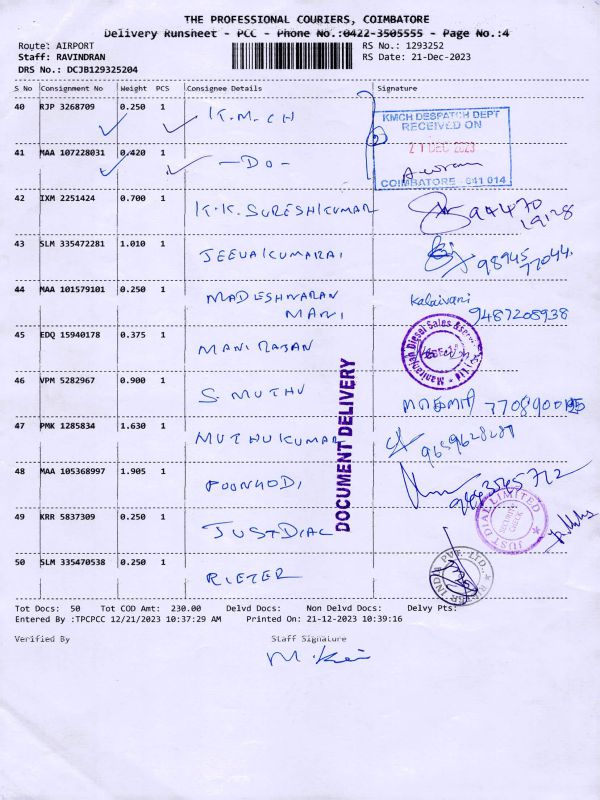 THE PROFESSIONAL COURIERS, COIMBATORE
Delivery Runsheet - PCC - Phone No.:0422-3505555 - Page No.:4
Route: AIRPORT RS No.: 1293252
Staff: RAVINDRAN RS Date: 21-Dec-2023
DRS No.: DCJB129325204
S No Consignment No Weight PCS Consignee Details Signature
40 RJP 3268709 0.250 1 K.M.CH
KMCH DESPATCH DEPT
RECEIVED ON
21 DEC 2023
COIMBATORE - 641 014
41 MAA 107228031 0.420 1 -DO-
42 IXM 2251424 0.700 1 K.K. SURESHKUMAR 94470
19128
43 SLM 335472281 1.010 1 JEEVAKUMARAI 98945
77044.
44 MAA 101579101 0.250 1 MADESHWARAN
MANI
Kalaivani
9487208938
45 EDQ 15940178 0.375 1 MANIRAJAN
46 VPM 5282967 0.900 1 S. MUTHU
47 PMK 1285834 1.630 1 MUTHUKUMAR
48 MAA 105368997 1.905 1 POONKODI
DOCUMENT DELIVERY
49 KRR 5837309 0.250 1 JUSTDIAL
JUST DIAL LIMITED
50 SLM 335470538 0.250 1 RIETER
Tot Docs: 50 Tot COD Amt: 230.00 Delvd Docs: Non Delvd Docs: Delvy Pts:
Entered By :TPCPCC 12/21/2023 10:37:29 AM Printed On: 21-12-2023 10:39:16
Verified By Staff Signature